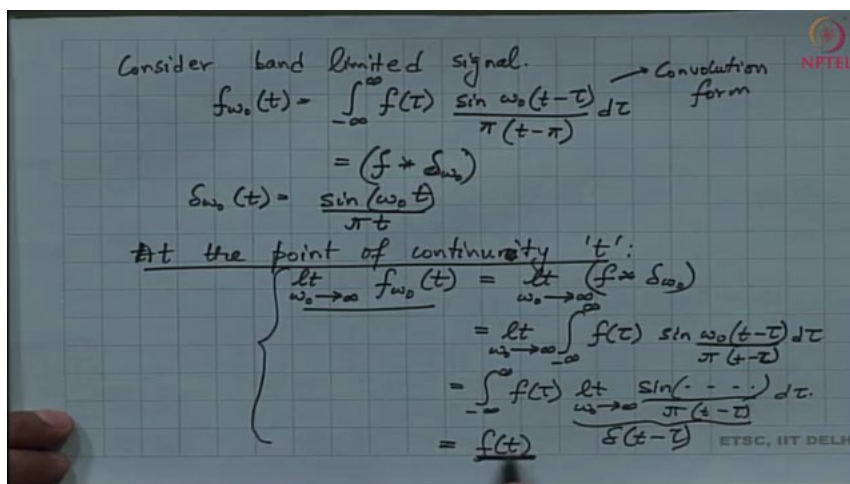 Consider band limited signal.
NPTEL
f_{ω₀}(t) = ∫_{-∞}^{∞} f(τ) sin ω₀(t-τ) / π(t-π) dτ → Convolution form
= (f * δ_{ω₀})
δ_{ω₀}(t) = sin(ω₀t) / πt
At the point of continuity 't':
lt_{ω₀→∞} f_{ω₀}(t) = lt_{ω₀→∞} (f * δ_{ω₀})
= lt_{ω₀→∞} ∫_{-∞}^{∞} f(τ) sin ω₀(t-τ) / π(t-τ) dτ
= ∫_{-∞}^{∞} f(τ) lt_{ω₀→∞} sin(....) / π(t-τ) dτ.
δ(t-τ)
= f(t)
ETSC, IIT DELH